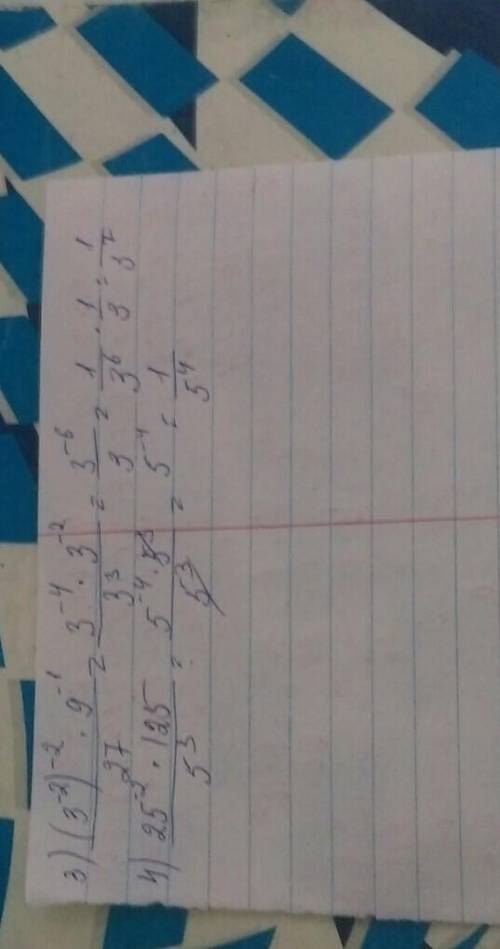 3) ((3^-2)^-2 · 9^-1)/27 = (3^-4 · 3^-2)/3^3 = 3^-6/3 = 1/3^6 · 1/3 = 1/3^7
4) (25^-2 · 125)/5^3 = (5^-4 · 5^3)/5^3 = 5^-4 = 1/5^4